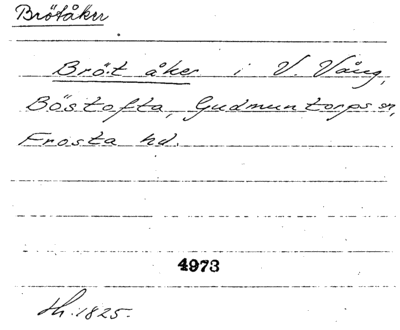 Brötåker
Bröt åker i V. Vång,
Böstofta, Gudmuntorps sn,
Frosta hd.
4973
Sk. 1825.